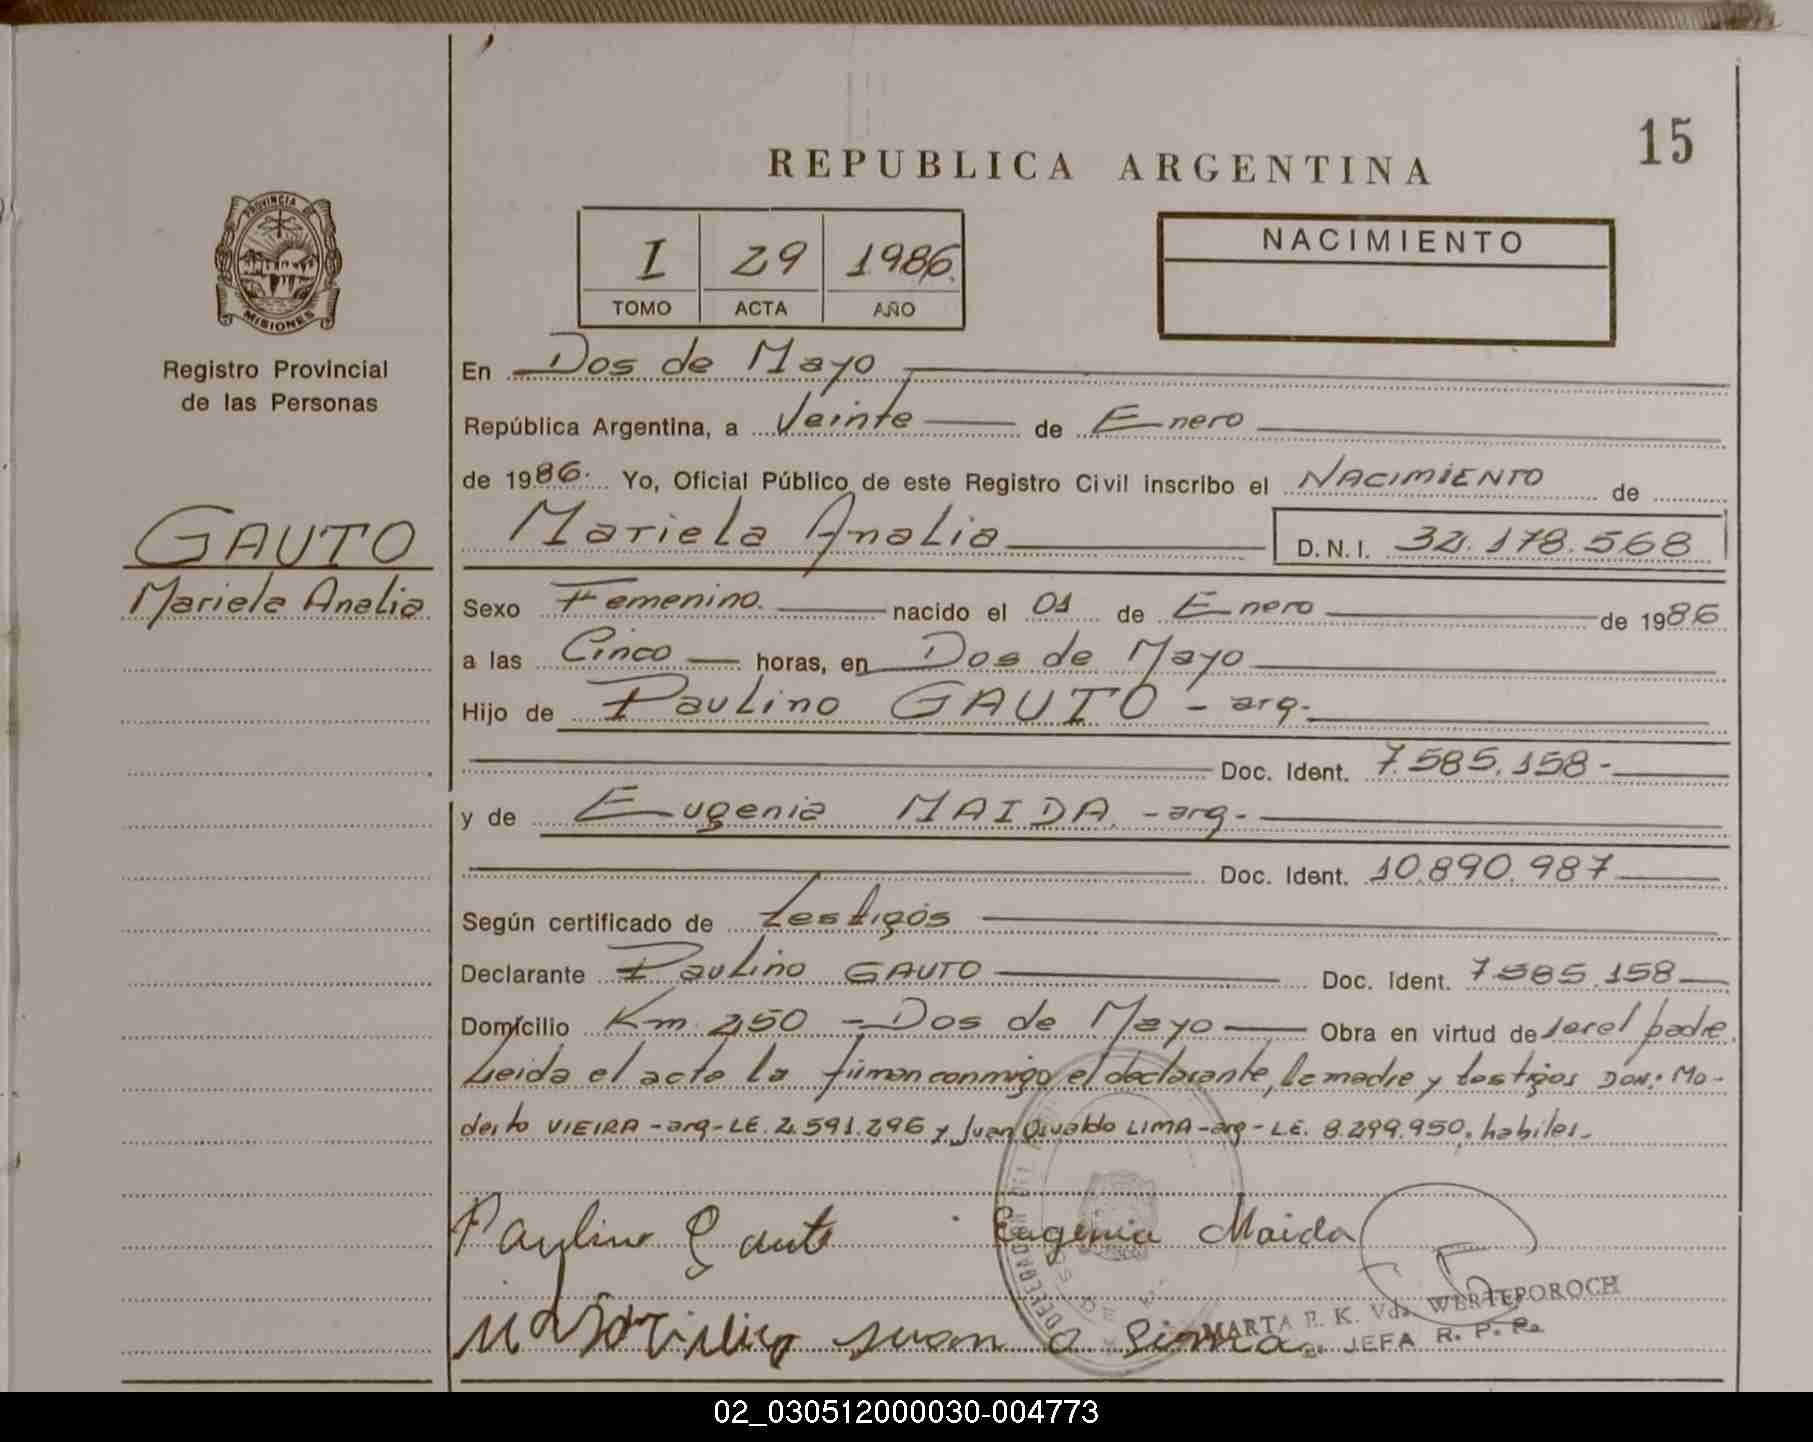 15
REPUBLICA ARGENTINA
PROVINCIA DE
MISIONES
Registro Provincial
de las Personas
I 29 1986
TOMO ACTA AÑO
NACIMIENTO
En Dos de Mayo
República Argentina, a Veinte de Enero
de 1986. Yo, Oficial Público de este Registro Civil inscribo el NACIMIENTO de
GAUTO
Mariela Analia
Mariela Analia D.N.I. 32.178.568
Sexo Femenino. nacido el 01 de Enero de 1986
a las Cinco horas, en Dos de Mayo
Hijo de Paulino GAUTO - arg-
Doc. Ident. 7.585.158-
y de Eugenia MAIDA - arg-
Doc. Ident. 10.890.987
Según certificado de testigos
Declarante Paulino GAUTO Doc. Ident. 7585.158
Domicilio Km. 250 - Dos de Mayo Obra en virtud de ser el padre.
Leida el acta la firman conmigo el declarante, la madre y testigos DON: Mo-
desto VIEIRA - arg - LE. 2.591.296 y Juan Osvaldo LIMA - arg - LE. 8.299.950. habiles.
Paulino Gauto Eugenia Maida
Juan O Lima
MARTA E. K. Vda. WERTEPOROCH
JEFA R. P. P.
02_030512000030-004773